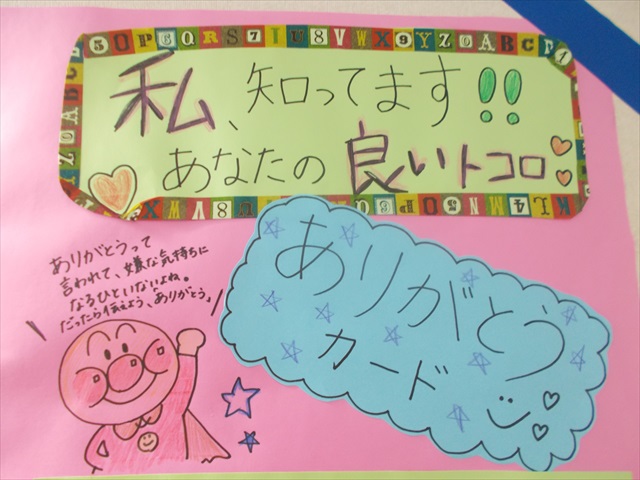 私、知ってます!!
あなたの良いトコロ
ありがとうって
言われて、嫌な気持ちに
なるひといないよね。
だったら伝えよう、「ありがとう」
ありがとう
カード